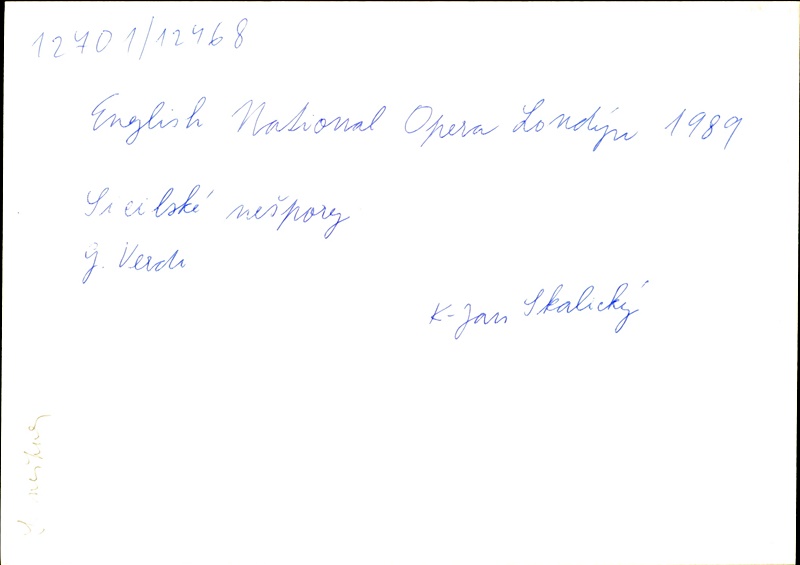 12701/12468
English National Opera Londýn 1989
Sicilské nešpory
G. Verdi
K-Jan Skalický
S. nešpory